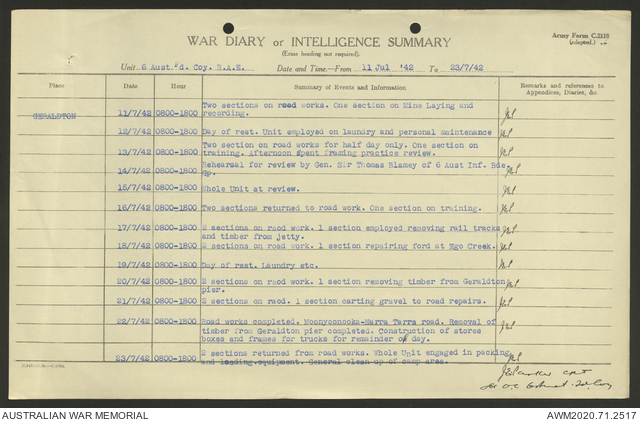 WAR DIARY or INTELLIGENCE SUMMARY
(Erase heading not required).
Army Form C.2118
(Adapted.)
Unit 6 Aust. Fd. Coy. R.A.E. Date and Time—From 11 Jul '42 To 23/7/42
Place Date Hour Summary of Events and Information Remarks and references to Appendices, Diaries, &c.
GERALDTON 11/7/42 0800-1800 Two sections on road works. One section on Mine Laying and
recording.
12/7/42 0800-1800 Day of rest. Unit employed on laundry and personal maintenance
13/7/42 0800-1800 Two section on road works for half day only. One section on
training. Afternoon spent framing practice review.
14/7/42 0800-1800 Rehearsal for review by Gen. Sir Thomas Blamey of 6 Aust Inf. Bde
Gp.
15/7/42 0800-1800 Whole Unit at review.
16/7/42 0800-1800 Two sections returned to road work. One section on training.
17/7/42 0800-1800 2 sections on raod work. 1 section employed removing rail tracks
and timber from jetty.
18/7/42 0800-1800 2 sections on road work. 1 section repairing ford at Ego Creek.
19/7/42 0800-1800 Day of rest. Laundry etc.
20/7/42 0800-1800 2 sections on raod work. 1 section removing timber from Geraldton
pier.
21/7/42 0800-1800 2 sections on raod. 1 section carting gravel to road repairs.
22/7/42 0800-1800 Road works completed. Moonyoonooka-Narra Tarra road. Removal of
timber from Geraldton pier completed. Construction of stores
boxes and frames for trucks for remainder of day.
23/7/42 0800-1800 2 sections returned from road works. Whole Unit engaged in packing
and loading equipment. General clean up of camp area.
Capt
for O.C.
AUSTRALIAN WAR MEMORIAL AWM2020.71.2517